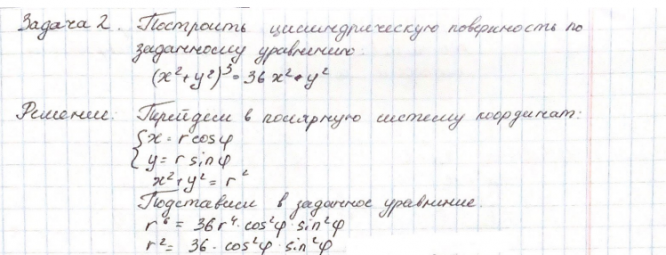 Задача 2. Построить цилиндрическую поверхность по
заданному уравнению.
(x²+y²)³=36x²·y²
Решение: Перейдем в полярную систему координат:
{x=r cosφ
{y=r sinφ
x²+y²=r²
Подставим в заданное уравнение.
r⁶=36r⁴·cos²φ·sin²φ
r²=36·cos²φ·sin²φ